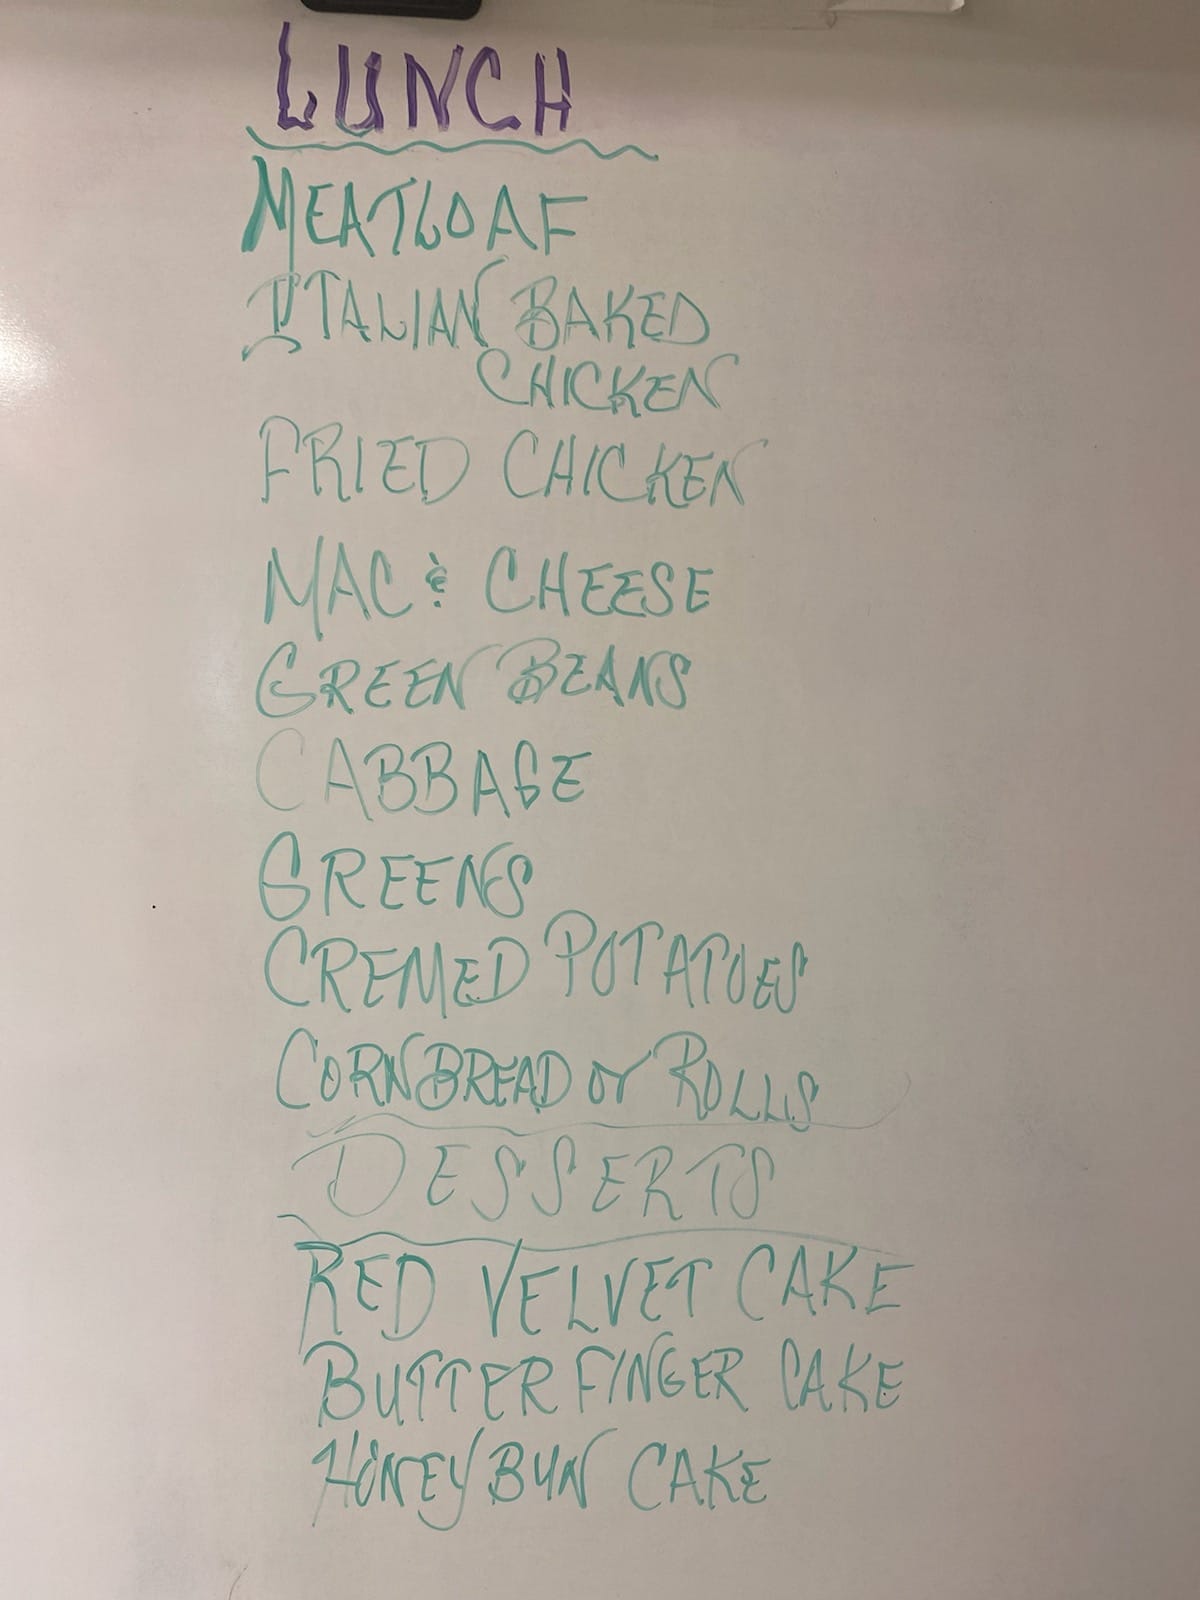 LUNCH
MEATLOAF
ITALIAN BAKED
CHICKEN
FRIED CHICKEN
MAC & CHEESE
GREEN BEANS
CABBAGE
GREENS
CREMED POTATOES
CORNBREAD or ROLLS
DESSERTS
RED VELVET CAKE
BUTTERFINGER CAKE
HONEYBUN CAKE